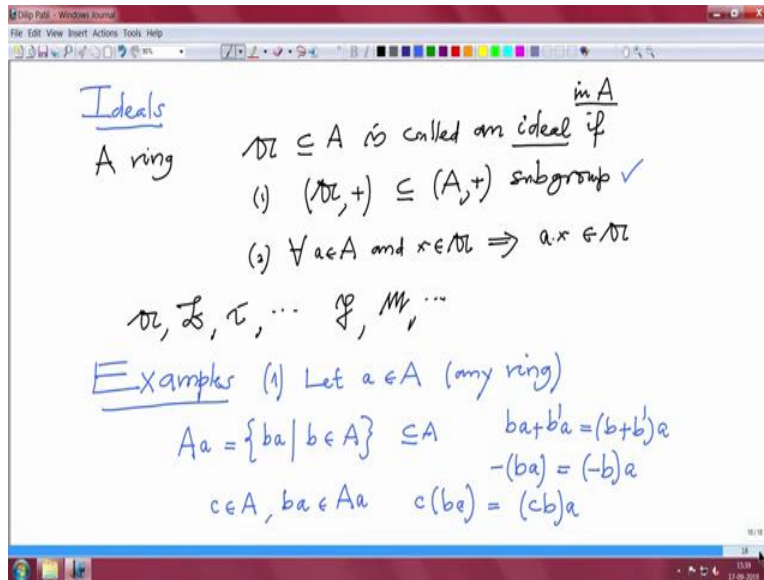 Dilip Patil - Windows Journal
File Edit View Insert Actions Tools Help
Ideals
in A
A ring
𝔞 ⊆ A is called an ideal if
(1) (𝔞,+) ⊆ (A,+) subgroup ✓
(2) ∀ a∈A and x∈𝔞 ⇒ a·x ∈ 𝔞
𝔞, 𝔟, 𝔠, ... 𝔭, 𝔪, ...
Examples (1) Let a ∈ A (any ring)
Aa = {ba | b ∈ A} ⊆ A ba+b'a = (b+b')a
-(ba) = (-b)a
c∈A, ba ∈ Aa c(ba) = (cb)a
18
15:39
17-09-2019